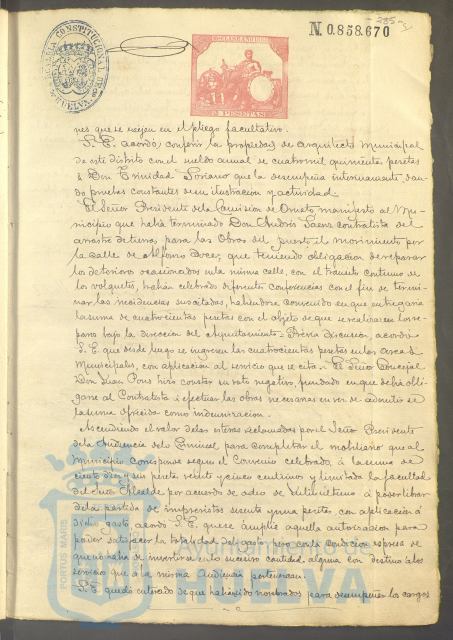 235
N.0.858.670
ALCALDIA CONSTITUCIONAL DE HUELVA
2 PESETAS
nes que se exijen en el pliego facultativo.
S. E. acordó conferir la propiedad de Arquitecto Municipal
de este distrito con el sueldo anual de cuatromil quinientas pesetas
á Don Trinidad Soriano que la desempeña interinamente, dan-
do pruebas constantes de su ilustracion y actividad.
El Señor Presidente de la Comision de Ornato manifestó al Mu-
nicipio que habia terminado Don Andrés Saenz contratista del
arrastre de tierras para las Obras del puerto el movimiento por
la Calle de Alfonso Doce; que teniendo obligacion de reparar
los deterioros ocasionados en la misma calle, con el tránsito continuo de
los volquetes, habian celebrado diferentes conferencias con el fin de termi-
nar las incidencias suscitadas, habiéndose convenido en que entregaria
la suma de cuatrocientas pesetas con el objeto de que se realizasen los re-
paros bajo la direccion del Ayuntamiento. Previa discusion, acordó
S. E. que desde luego se ingresen las cuatrocientas pesetas en las arcas
Municipales, con aplicacion al servicio que se cita. El Señor Concejal
Don Juan Pons hizo constar su voto negativo, fundado en que debia obli-
garse al Contratista á efectuar las obras necesarias en vez de admitir se
la suma ofrecida como indemnizacion.
Ascendiendo el valor de los reclamados por el Señor Presidente
de la Audiencia de lo Criminal para completar el mobiliario que al
Municipio corresponde segun el Convenio celebrado, á la suma de
ciento diez y seis pesetas veinte y cinco centimos y limitada la facultad
del Señor Alcalde por acuerdo de á poder librar
de la partida de imprevistos sesenta y una pesetas, con aplicacion á
dicho gasto, acordó S. E. que se amplie aquella autorizacion para
poder satisfacer la totalidad del gasto, pero con la condicion expresa de
que no ha de invertirse en lo sucesivo cantidad alguna con destino á los
servicios que á la misma Audiencia pertenezcan.
S. E. quedó enterado de que habian sido nombrados para desempeñar los cargos
Ayuntamiento de
HUELVA
PORTUS MARIS